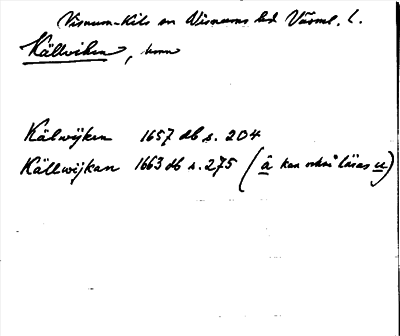 Visnum-Kils sn Visnums hd Värml. l.
Källviken, hmn
Kälwijken 1657 db s. 204
Källwijkan 1663 db s. 275 (a kan också läsas u)